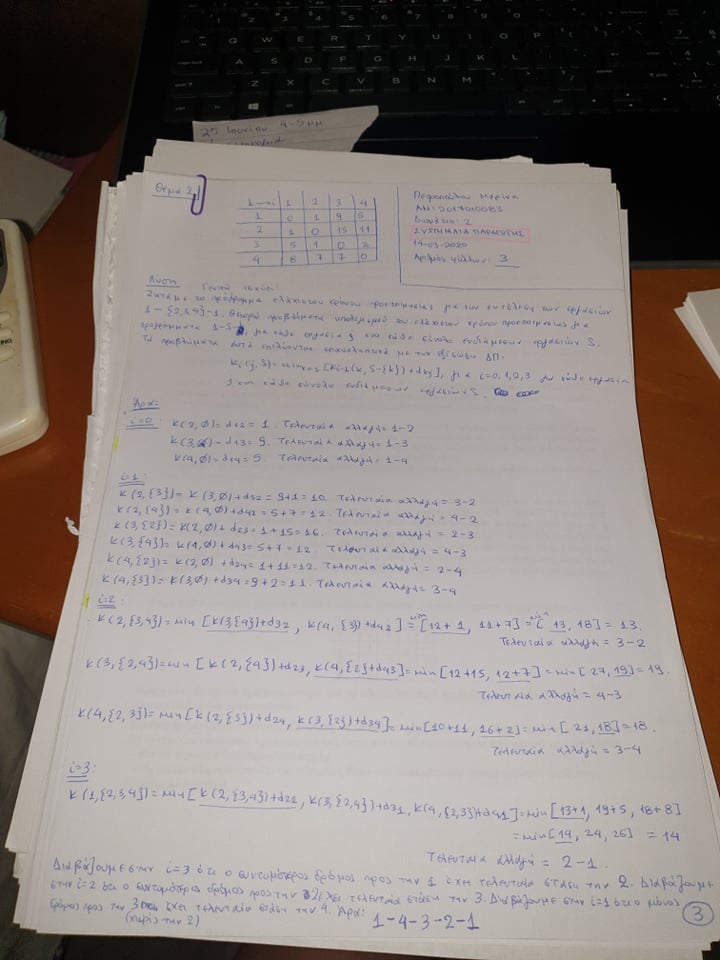 25 Ιουνίου 4-5μμ
Θέμα 2
k→i 1 2 3 4
1 0 1 9 5
2 1 0 15 11
3 5 1 0 2
4 8 7 7 0
Μαρίνα
ΑΜ: 2017010083
2
ΣΥΣΤΗΜΑΤΑ ΠΑΡΑΓΩΓΗΣ
14-09-2020
Αριθμός φύλλων: 3
Λύση Γενικά ισχύει:
Ζητάμε το πρόγραμμα ελάχιστου χρόνου προετοιμασίας για την εκτέλεση των εργασιών
1-{2,3,4}-1. Θεωρώ προβλήματα υπολογισμού του ελάχιστου χρόνου προετοιμασίας για
προγράμματα 1-S-j, για κάθε εργασία j και κάθε σύνολο ενδιάμεσων εργασιών S.
Τα προβλήματα αυτά επιλύονται επαναληπτικά με την εξίσωση ΔΠ:
Ki(j,S)=min k∈S [Ki-1(k,S-{k})+dkj], για i=0,1,2,3 για κάθε εργασία
j και κάθε σύνολο ενδιάμεσων εργασιών S.
Άρα:
i=0: K(2,∅)=d12=1. Τελευταία αλλαγή=1-2
K(3,∅)=d13=9. Τελευταία αλλαγή=1-3
K(4,∅)=d14=5. Τελευταία αλλαγή=1-4
i=1:
K(2,{3})=K(3,∅)+d32=9+1=10. Τελευταία αλλαγή=3-2
K(2,{4})=K(4,∅)+d42=5+7=12. Τελευταία αλλαγή=4-2
K(3,{2})=K(2,∅)+d23=1+15=16. Τελευταία αλλαγή=2-3
K(3,{4})=K(4,∅)+d43=5+7=12. Τελευταία αλλαγή=4-3
K(4,{2})=K(2,∅)+d24=1+11=12. Τελευταία αλλαγή=2-4
K(4,{3})=K(3,∅)+d34=9+2=11. Τελευταία αλλαγή=3-4
i=2:
K(2,{3,4})=min[K(3,{4})+d32, K(4,{3})+d42]=min[12+1, 11+7]=min[13,18]=13.
Τελευταία αλλαγή=3-2
K(3,{2,4})=min[K(2,{4})+d23, K(4,{2}+d43]=min[12+15, 12+7]=min[27,19]=19.
Τελευταία αλλαγή=4-3
K(4,{2,3})=min[K(2,{3})+d24, K(3,{2})+d34]=min[10+11, 16+2]=min[21,18]=18.
Τελευταία αλλαγή=3-4
i=3:
K(1,{2,3,4})=min[K(2,{3,4})+d21, K(3,{2,4})+d31, K(4,{2,3})+d41]=min[13+1, 19+5, 18+8]
=min[14, 24, 26] = 14
Τελευταία αλλαγή = 2-1.
Διαβάζουμε στην i=3 ότι ο συντομότερος δρόμος προς την 1 έχει τελευταία στάση την 2. Διαβάζουμε
στην i=2 ότι ο συντομότερος δρόμος προς την 2 έχει τελευταία στάση την 3. Διαβάζουμε στην i=1 ότι ο μόνος
δρόμος προς την 3 έχει τελευταία στάση την 4. Άρα: 1-4-3-2-1
(χωρίς την 2)
3